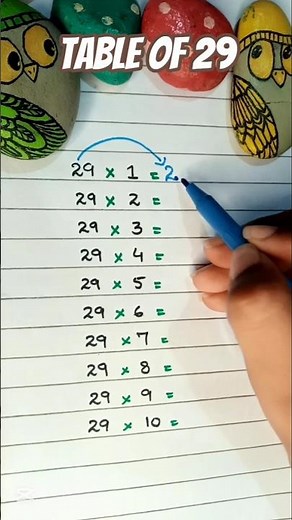 TABLE OF 29
29 × 1 = 2
29 × 2 =
29 × 3 =
29 × 4 =
29 × 5 =
29 × 6 =
29 × 7 =
29 × 8 =
29 × 9 =
29 × 10 =